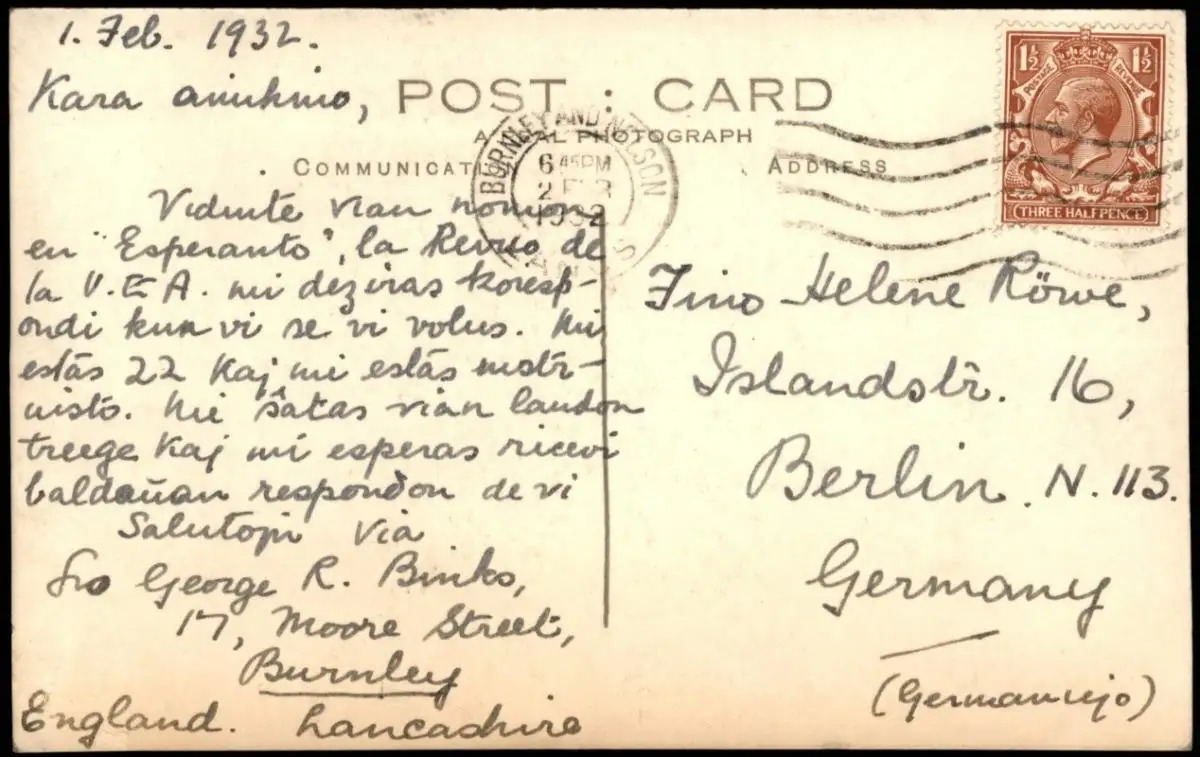 1. Feb. 1932.
Kara amikino,
POST : CARD
A REAL PHOTOGRAPH
COMMUNICATI
ADDRESS
BURNLEY AND NELSON
6 45PM
2 FEB
1932
LANCS
1½ 1½
POSTAGE REVENUE
THREE HALFPENCE
Vidinte vian nomon
en "Esperanto", la Revuo de
la U.E.A. mi deziras koresp-
ondi kun vi se vi volus. Mi
estas 22 kaj mi estas instr-
uisto. Mi ŝatas vian landon
treege kaj mi esperas ricevi
baldaŭan respondon de vi
Salutojn Via
Sro George R. Binks,
17, Moore Street,
Burnley
England. Lancashire
Fino Helene Röwe,
Islandstr. 16,
Berlin. N. 113.
Germany
(Germanujo)